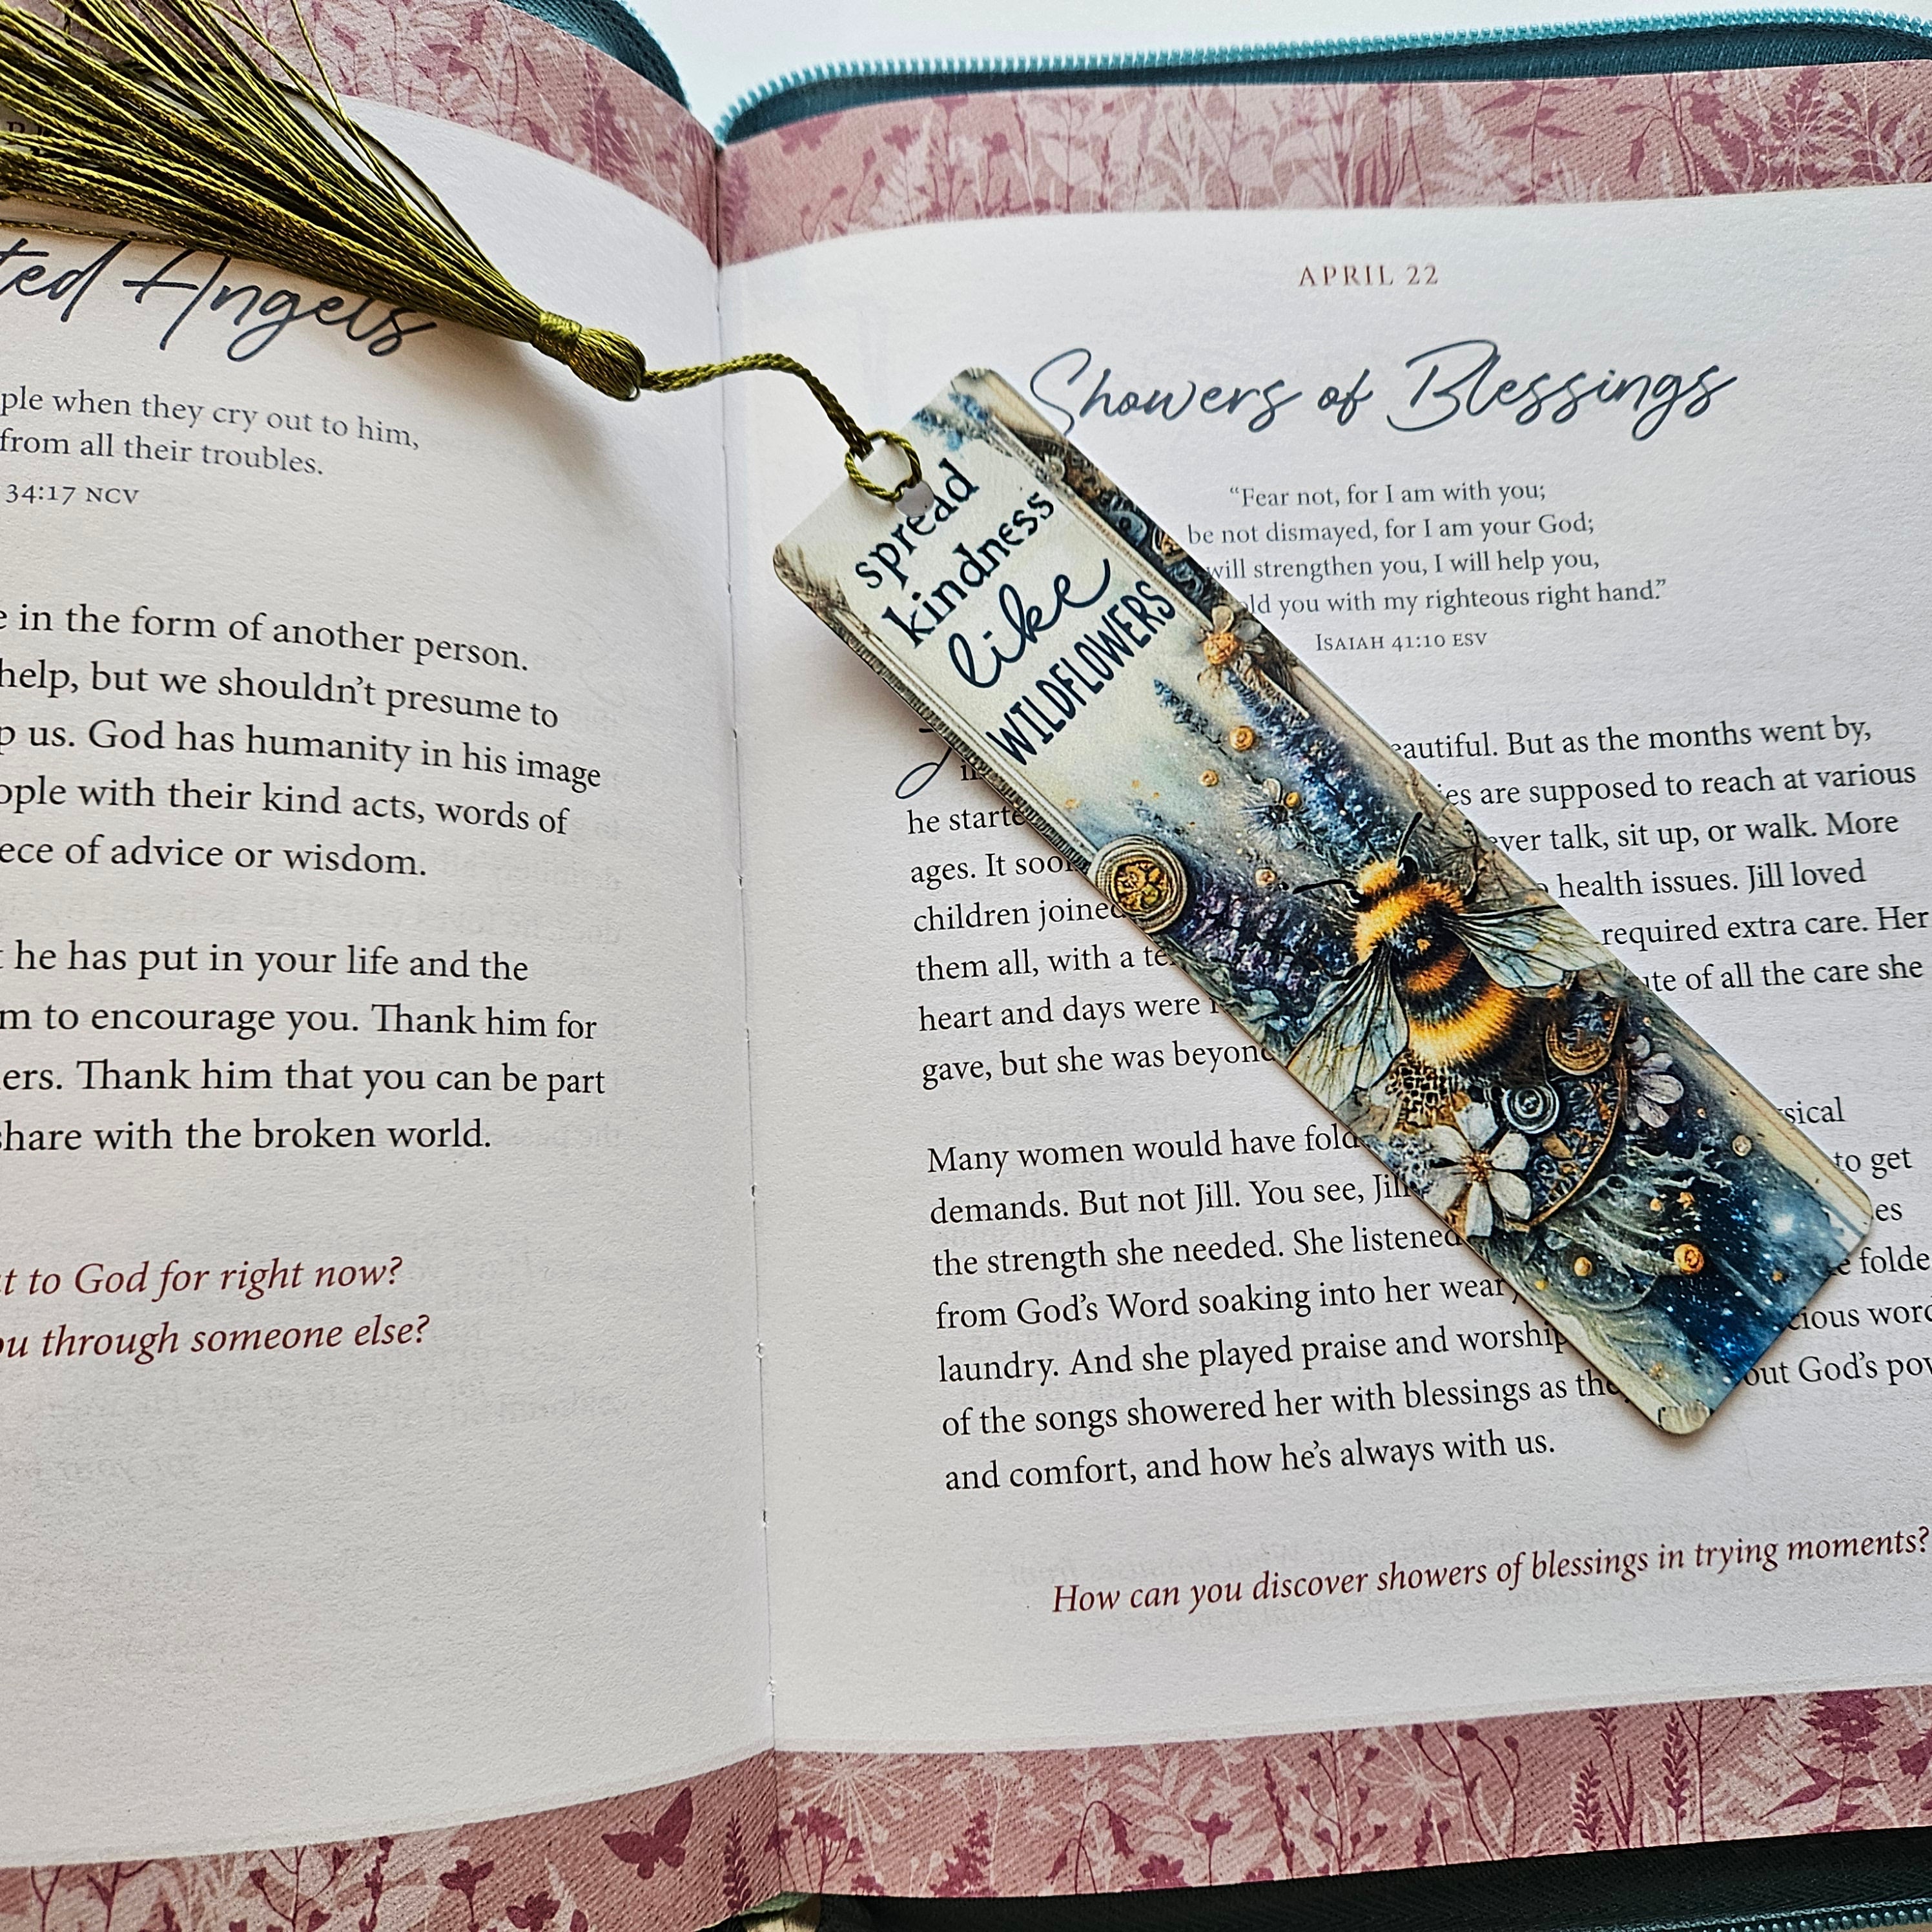 ted Angels
ple when they cry out to him,
from all their troubles.
34:17 NCV
e in the form of another person.
help, but we shouldn't presume to
p us. God has humanity in his image
ople with their kind acts, words of
ece of advice or wisdom.
t he has put in your life and the
m to encourage you. Thank him for
ers. Thank him that you can be part
share with the broken world.
t to God for right now?
ou through someone else?
spread
kindness
like
WILDFLOWERS
APRIL 22
Showers of Blessings
“Fear not, for I am with you;
be not dismayed, for I am your God;
will strengthen you, I will help you,
old you with my righteous right hand.”
ISAIAH 41:10 ESV
eautiful. But as the months went by,
he starte ies are supposed to reach at various
ages. It soon ever talk, sit up, or walk. More
children joined health issues. Jill loved
them all, with a te required extra care. Her
heart and days were ute of all the care she
gave, but she was beyond
Many women would have fold sical
demands. But not Jill. You see, Jill to get
the strength she needed. She listened es
from God's Word soaking into her weary folde
laundry. And she played praise and worship cious word
of the songs showered her with blessings as the out God's pow
and comfort, and how he's always with us.
How can you discover showers of blessings in trying moments?